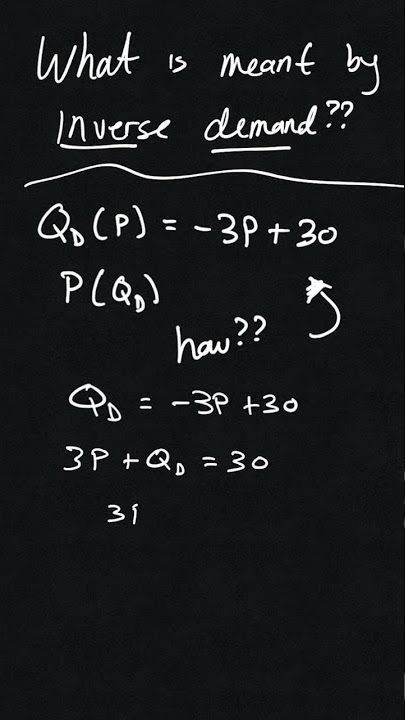 What is meant by
inverse demand??
Q_D(P) = -3P + 30
P(Q_D)
how??
Q_D = -3P + 30
3P + Q_D = 30
3P